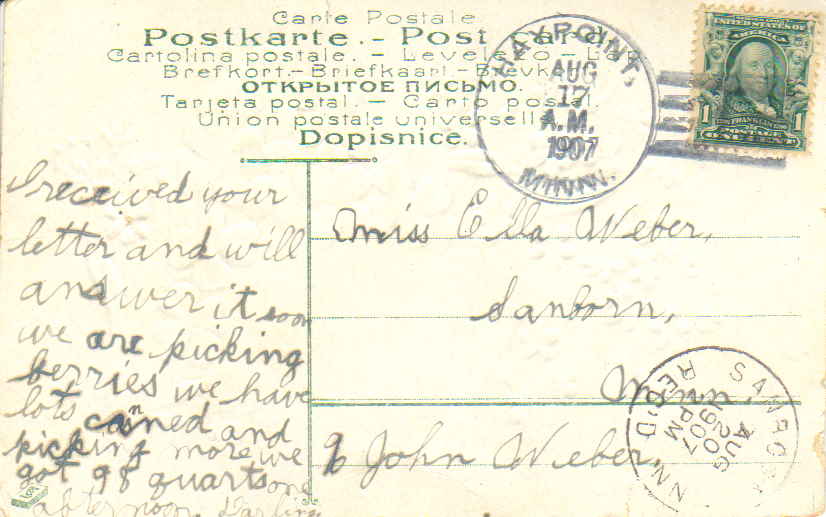 Carte Postale
Postkarte. - Post Card
Cartolina postale. - Levelezo - Lap
Brefkort. - Briefkaart. - Brevkort
ОТКРЫТОЕ ПИСЬМО.
Tarjeta postal. - Carto postal.
Union postale universelle
Dopisnice.
AUG
17
A.M.
1907
MINN.
UNITED STATES OF
AMERICA
1 1
FRANKLIN
POSTAGE
ONE CENT
I received your
letter and will
answer it soon
we are picking
berries we have
lots canned and
picking more we
got 98 quarts one
afternoon
Miss Ella Weber,
Sanborn,
Minn
℅ John Weber,
SANBORN
AUG
20
PM
1907
REC'D.